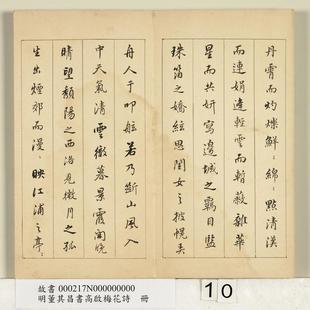 丹霄而灼爍鮮〻綿〻點清漢
而連娟遠輕雲而暫蔽雜華
星而共妍寫邊城之羈目監
珠箔之嬌絃思閨女之披幌矣
舟人于叩舷若乃斷山風入
中天氣清雲徹暮景霞開晚
晴望頹陽之西落見微月之孤
生出煙郊而漫〻映江浦之亭〻
故書 000217N000000000
明董其昌書高啟梅花詩 冊
10